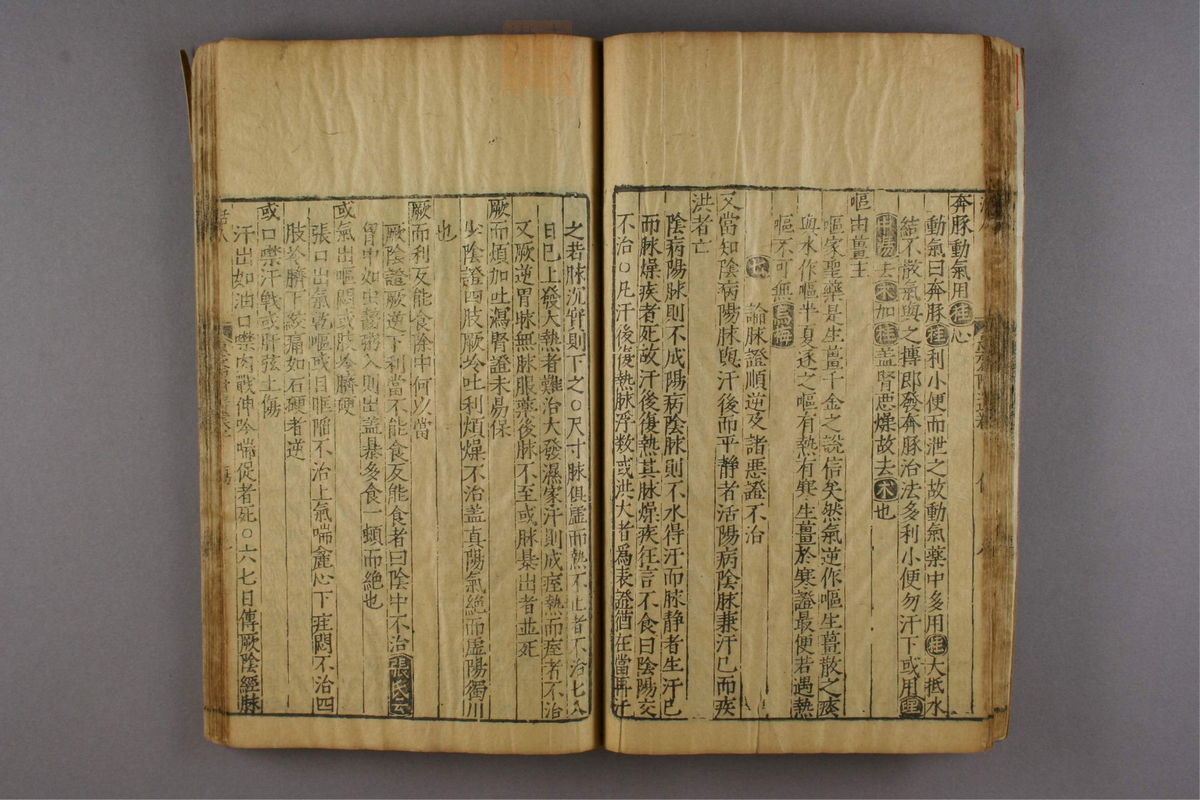 奔豚動氣用桂心
動氣曰奔豚桂利小便而泄之故動氣藥中多用桂大抵水
結不散氣與之搏即發奔豚治法多利小便勿汗下或用理
中湯去朮加桂蓋腎惡燥故去朮也
嘔由薑主
嘔家聖藥是生薑千金之說信矣然氣逆作嘔生薑散之痰
與水作嘔半夏逐之嘔有熱有寒生薑於寒證最便若遇熱
嘔不可無烏梅
論脉證順逆及諸惡證不治
又當知陰病陽脉與汗後而平靜者活陽病陰脉兼汗已而疾
洪者亡
陰病陽脉則不成陽病陰脉則不水得汗而脉靜者生汗已
而脉燥疾者死故汗後復熱其脉燥疾狂言不食曰陰陽交
不治○凡汗後復熱脉浮数或洪大者爲表證猶在當再汗
之若脉沉實則下之○尺寸脉俱虛而熱不止者不治七八
日已上發大熱者難治大發濕家汗則成痓熱而痓者不治
又厥逆冒昧無脉服藥後脉不至或脉暴出者並死
厥而煩加吐瀉腎證未易保
少陰證四肢厥冷吐利煩燥不治蓋真陽氣絶而虛陽獨
也
厥而利反能食除中何以當
厥陰證厥逆下利當不能食反能食者曰陰中不治張氏云
胃中如虫齧粥入則出蓋暴多食一頓而絶也
或氣出嘔悶或肢冷臍硬
張口出氣乾嘔或目眶𦡁不治上氣喘麄心下痓悶不治四
肢冷臍下絞痛如石硬者逆
或口噤汗戰或肝弦土傷
汗出如油口噤肉戰伸吟喘促者死○六七日傳厥陰經脉